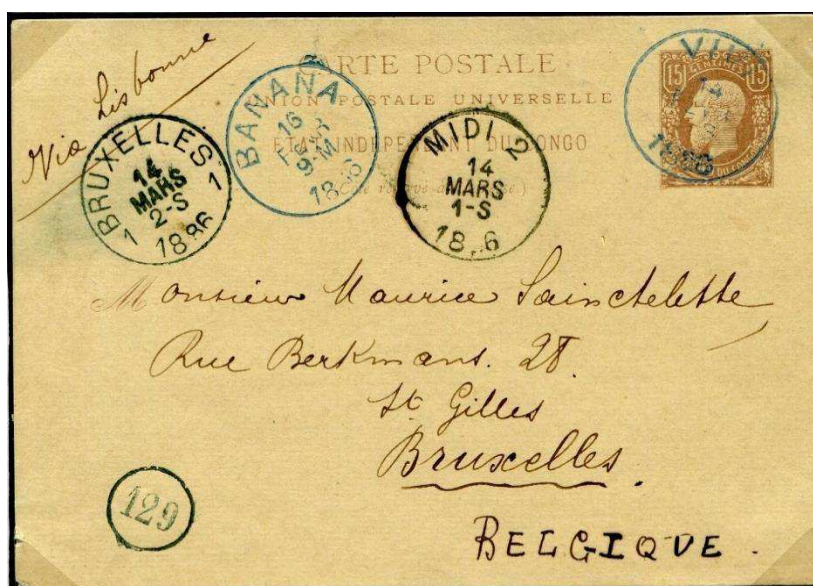 Via Lisbonne
CARTE POSTALE
UNION POSTALE UNIVERSELLE
ETAT INDEPENDANT DU CONGO
15 CENTIMES 15
DU CONGO
BRUXELLES
14
MARS
2-S
1886
1 1
BANANA
16
9-M
MIDI 2
14
MARS
1-S
14
1886
Monsieur Maurice Sainctelette
Rue Berkmans. 28.
St Gilles
Bruxelles.
BELGIQUE.
129